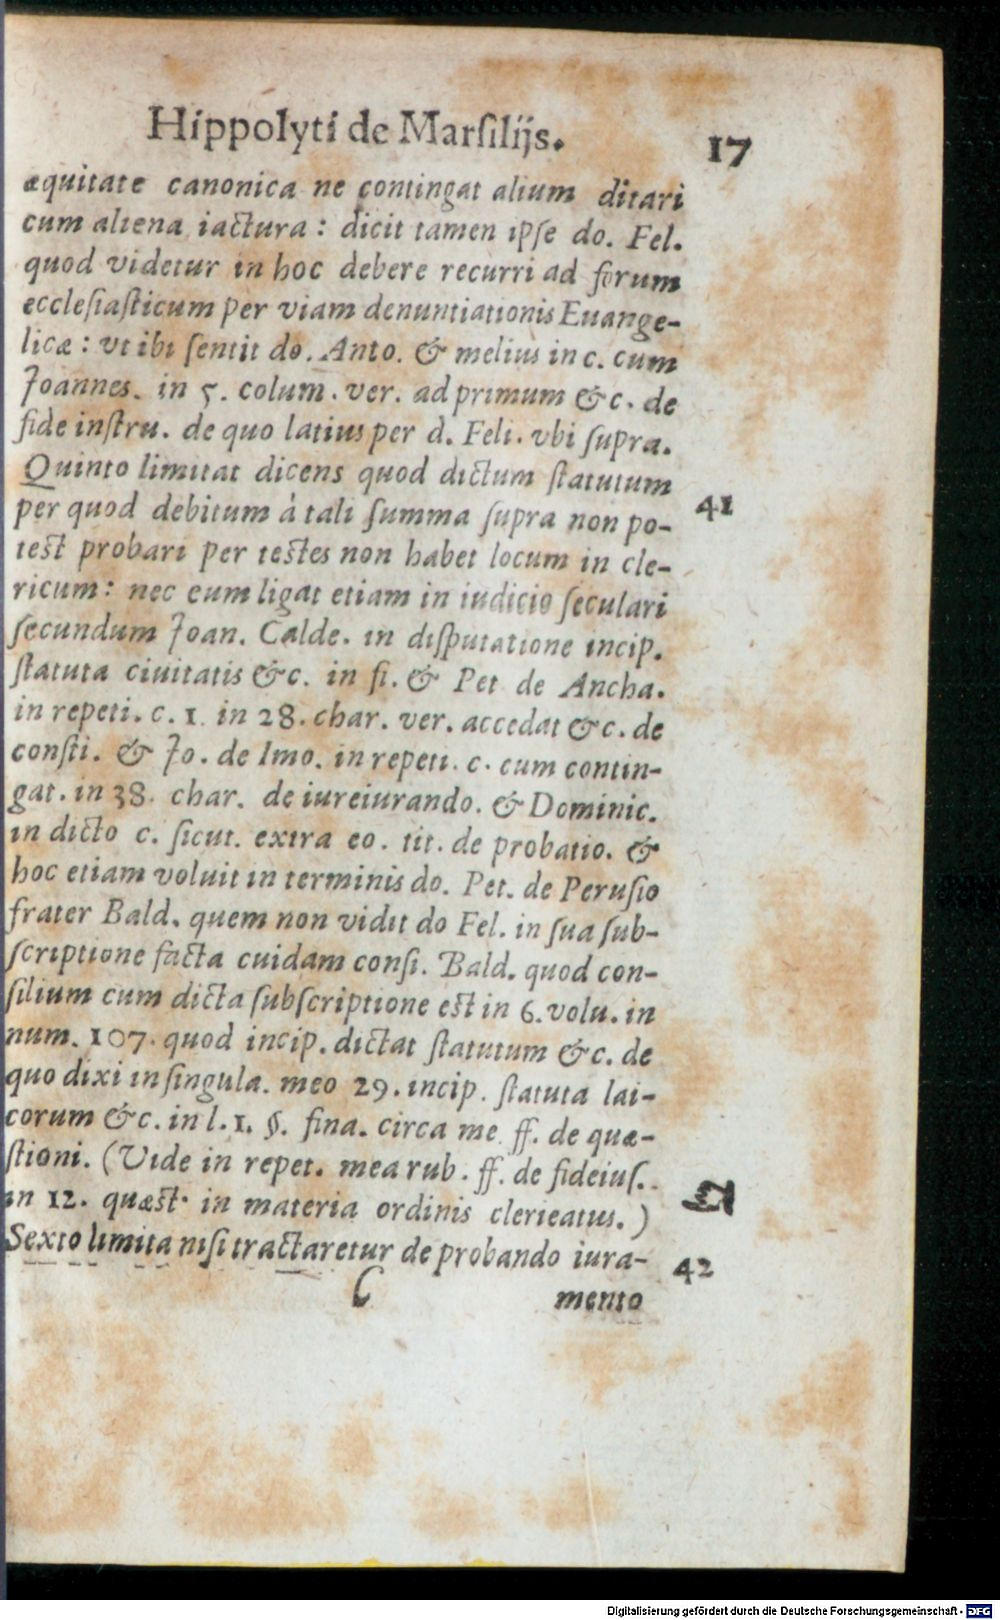 Hippolyti de Marſilijs. 17
æquitate canonica ne contingat alium ditari
cum aliena iactura : dicit tamen ipſe do. Fel.
quod videtur in hoc debere recurri ad forum
eccleſiaſticum per viam denuntiationis Euange-
licæ : vt ibi ſentit do. Anto. & melius in c. cum
Joannes. in 5. colum. ver. ad primum &c. de
fide inſtru. de quo latius per d. Feli. vbi ſupra.
Quinto limitat dicens quod dictum ſtatutum
per quod debitum à tali ſumma ſupra non po- 41
teſt probari per teſtes non habet locum in cle-
ricum: nec eum ligat etiam in iudicio ſeculari
ſecundum Joan. Calde. in diſputatione incip.
ſtatuta ciuitatis &c. in fi. & Pet de Ancha.
in repeti. c. 1. in 28. char. ver. accedat &c. de
conſti. & Jo. de Imo. in repeti. c. cum contin-
gat. in 38. char. de iureiurando. & Dominic.
in dicto c. ſicut. extra eo. tit. de probatio. &
hoc etiam voluit in terminis do. Pet. de Peruſio
frater Bald. quem non vidit do Fel. in ſua ſub-
ſcriptione facta cuidam conſi. Bald. quod con-
ſilium cum dicta ſubſcriptione eſt in 6. volu. in
num. 107. quod incip. dictat ſtatutum &c. de
quo dixi in ſingula. meo 29. incip. ſtatuta lai-
corum &c. in l. 1. §. fina. circa me ff. de quæ-
ſtioni. (Vide in repet. mea rub. ff. de fideiuſ.
in 12. quæſt. in materia ordinis clerieatus.)
Sexto limita niſi tractaretur de probando iura- 42
C mento
Digitalisierung gefördert durch die Deutsche Forschungsgemeinschaft - DFG